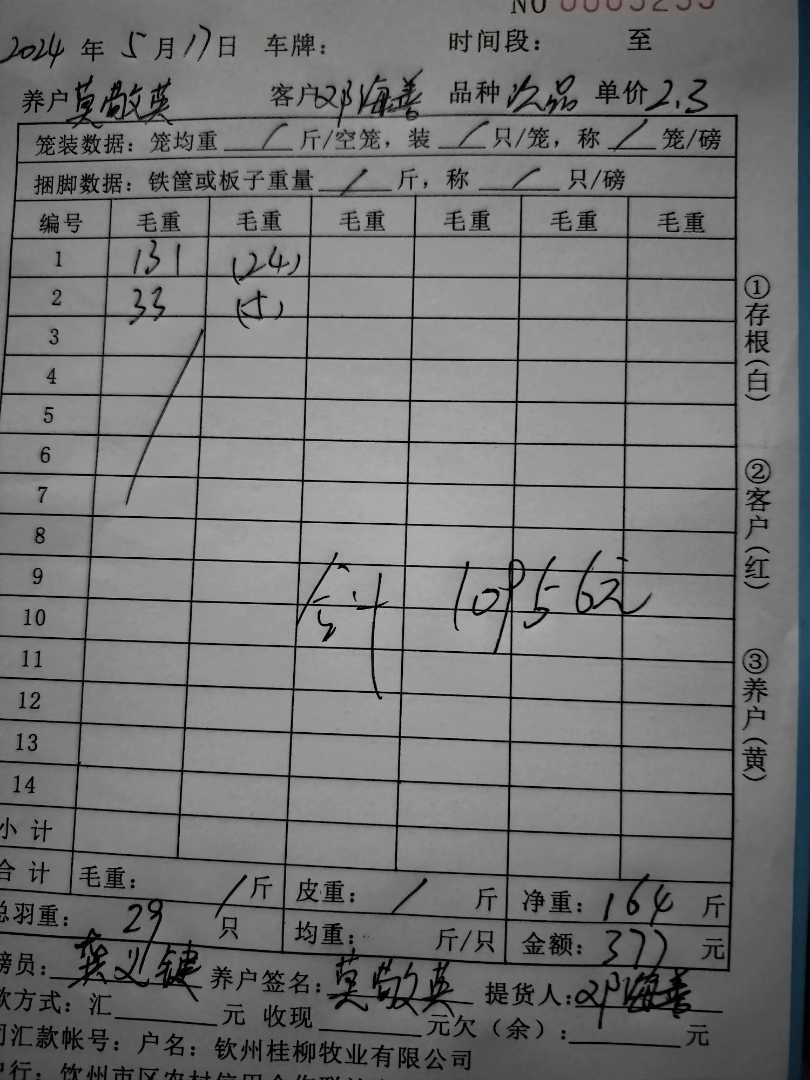 2024 年 5 月 17 日 车牌： 时间段： 至
养户 莫敬英 客户 邓海善 品种 次品 单价 2.3
笼装数据：笼均重 / 斤/空笼，装 / 只/笼，称 / 笼/磅
捆脚数据：铁筐或板子重量 / 斤，称 / 只/磅
编号 毛重 毛重 毛重 毛重 毛重 毛重
1 131 (24)
2 33 (5)
3
4
5
6
7
8
9
合计 10956元
10
11
12
13
14
小 计
合 计 毛重： / 斤 皮重： / 斤 净重：164 斤
总羽重： 29 只 均重： 斤/只 金额：377 元
磅员：龚义键 养户签名：莫敬英 提货人：邓海善
款方式：汇 元 收现 元欠（余）： 元
司汇款帐号：户名：钦州桂柳牧业有限公司
①存根（白）
②客户（红）
③养户（黄）